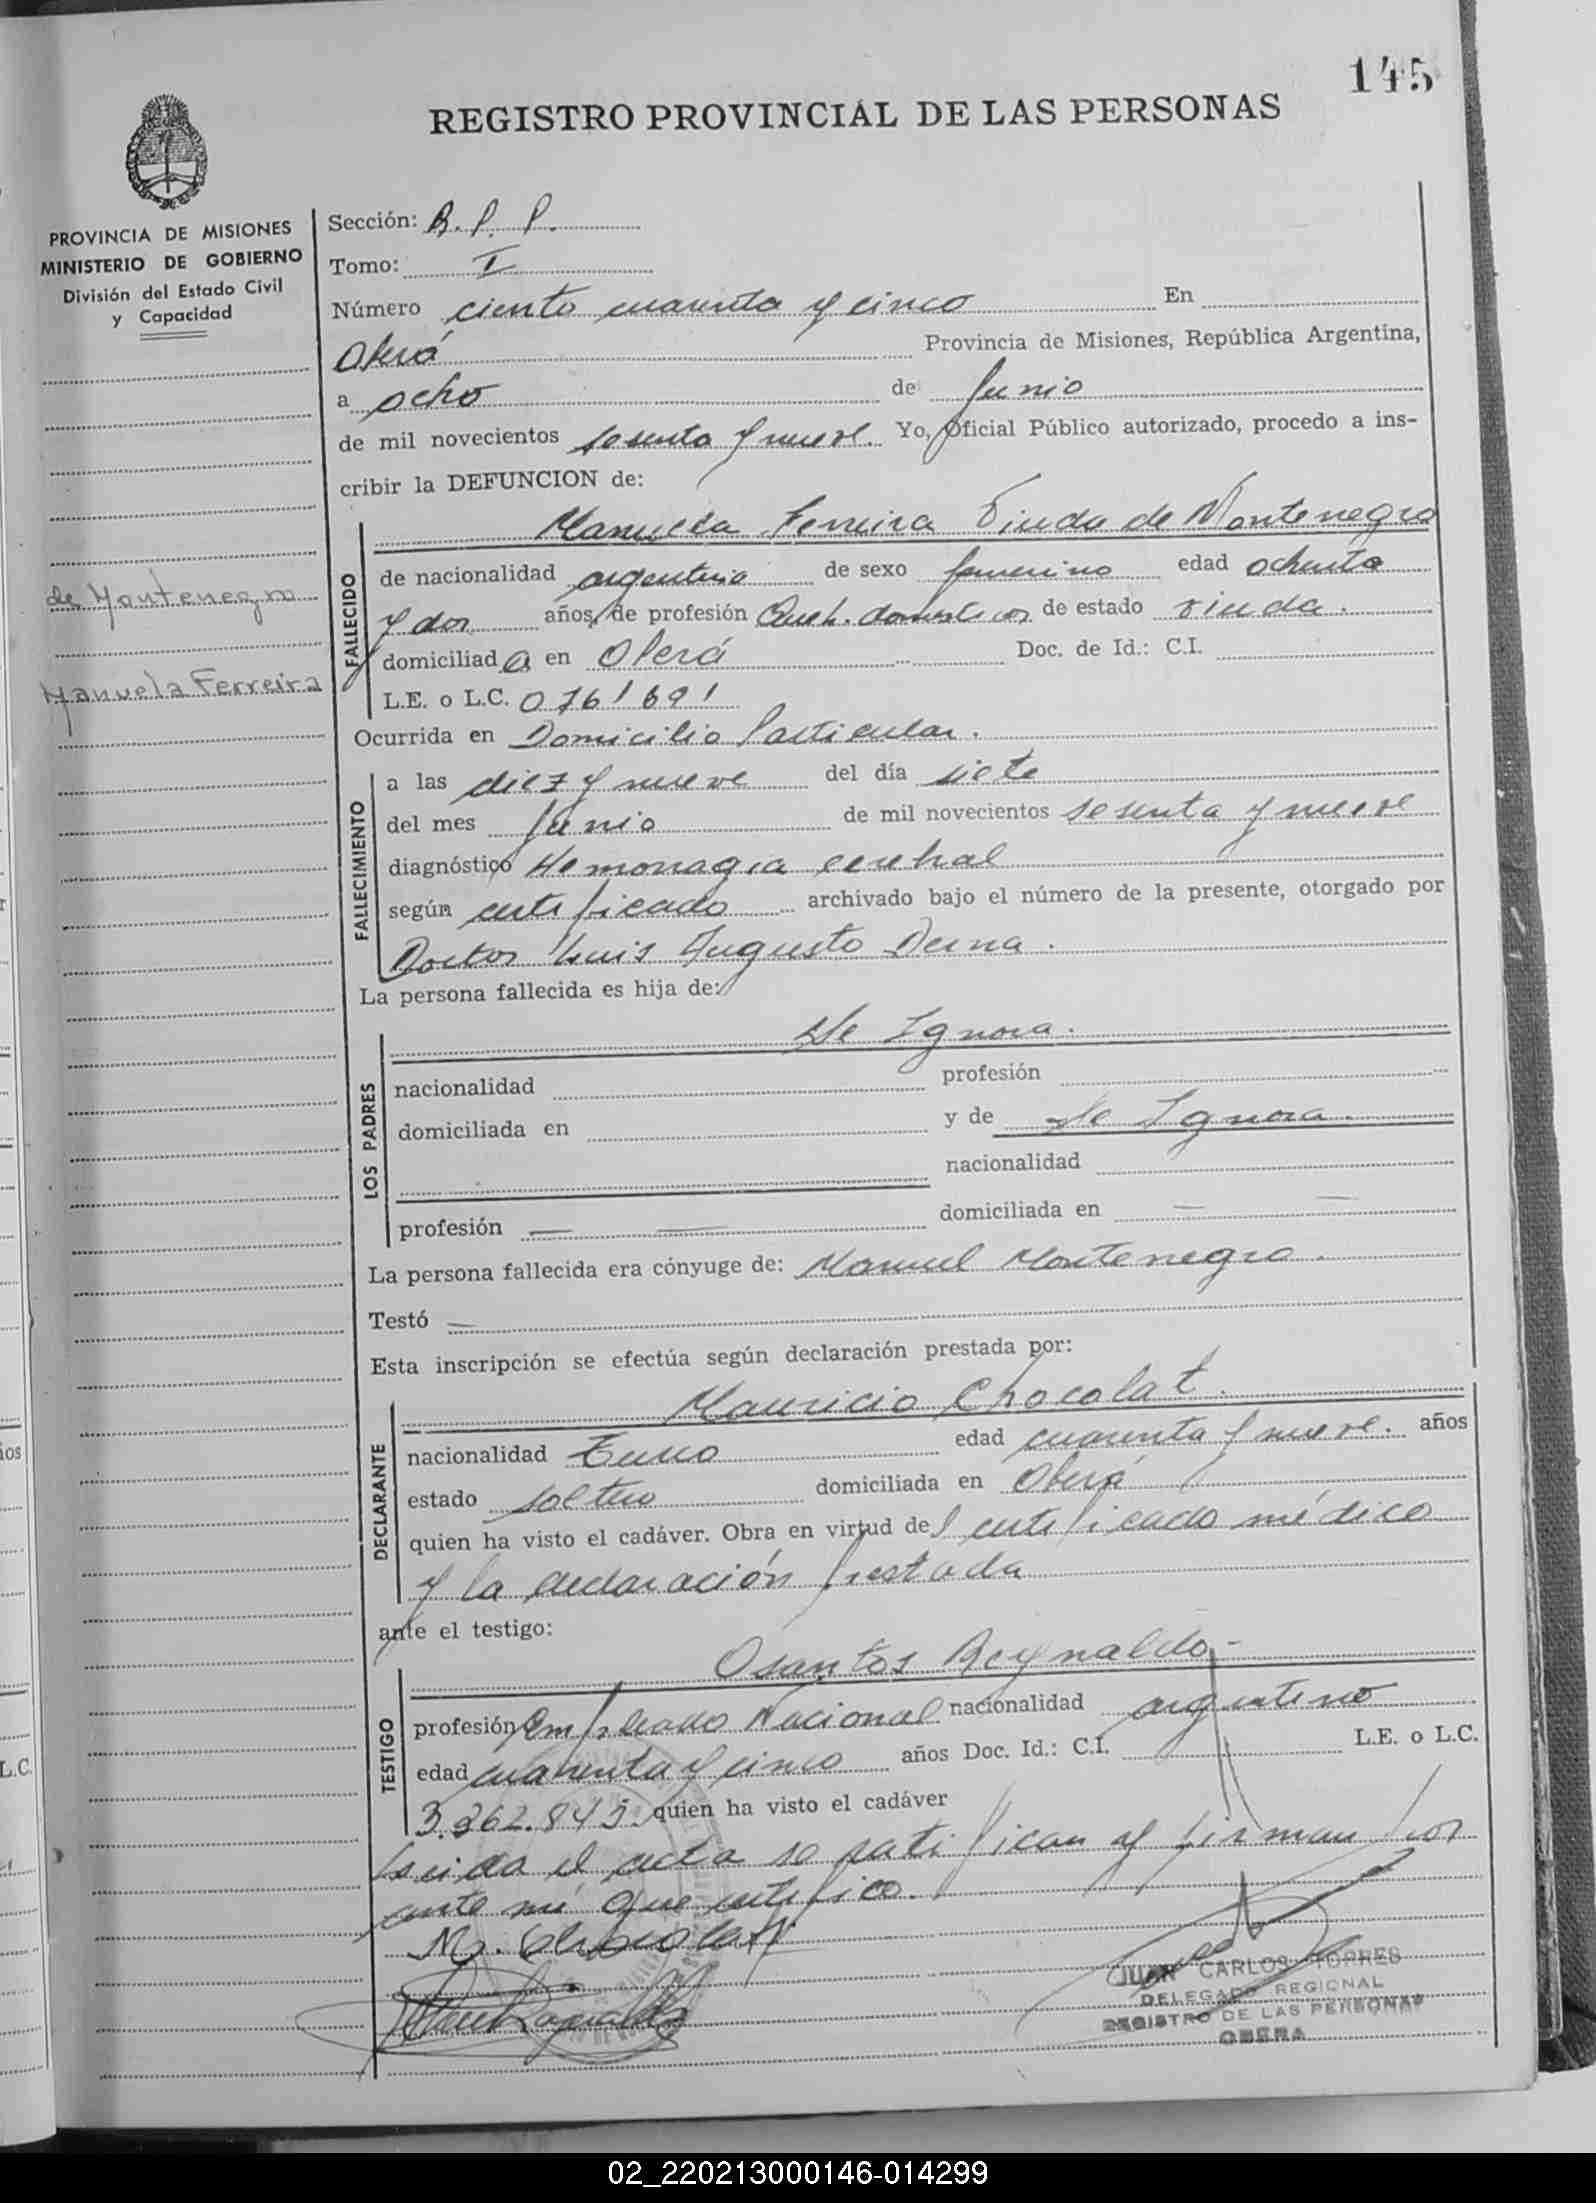 145
REGISTRO PROVINCIAL DE LAS PERSONAS
PROVINCIA DE MISIONES
MINISTERIO DE GOBIERNO
División del Estado Civil
y Capacidad
de Montenegro
Manuela Ferreira
Sección: B. P. P.
Tomo: I
Número ciento cuarenta y cinco En
Oberá Provincia de Misiones, República Argentina,
a ocho de Junio
de mil novecientos sesenta y nueve. Yo, Oficial Público autorizado, procedo a ins-
cribir la DEFUNCION de:
FALLECIDO
Manuela Ferreira Viuda de Montenegro
de nacionalidad argentina de sexo femenino edad ochenta
y dos años, de profesión Queh. domesticos de estado viuda.
domiciliada en Oberá Doc. de Id.: C.I.
L.E. o L.C.
Ocurrida en Domicilio Particular.
FALLECIMIENTO
a las diez y nueve del día siete
del mes Junio de mil novecientos sesenta y nueve
diagnóstico Hemorragia cerebral
según certificado archivado bajo el número de la presente, otorgado por
Doctor Luis Augusto Derna.
La persona fallecida es hija de:
LOS PADRES
Se Ignora.
nacionalidad profesión
domiciliada en y de Se Ignora.
nacionalidad
profesión — — domiciliada en — —
La persona fallecida era cónyuge de: Manuel Montenegro.
Testó —
Esta inscripción se efectúa según declaración prestada por:
DECLARANTE
Mauricio Chocolat.
nacionalidad edad cuarenta y nueve. años
estado soltero domiciliada en Oberá
quien ha visto el cadáver. Obra en virtud del certificado médico
y la declaración prestada
ante el testigo:
TESTIGO
Osantos Reynaldo -
profesión Empleado Nacional nacionalidad argentino
edad cuarenta y cinco años Doc. Id.: C.I. L.E. o L.C.
3.362.845. quien ha visto el cadáver
Leída el acta se ratifican y firman por
ante mí que certifico.
M. Chocolat
JUAN CARLOS TORRES
DELEGADO REGIONAL
REGISTRO DE LAS PERSONAS
OBERA
02_220213000146-014299